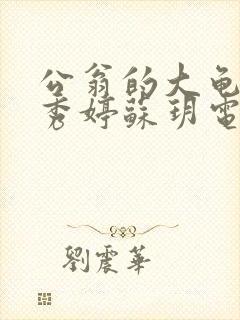 公翁的大龟
秀婷蘇玥電
劉震華